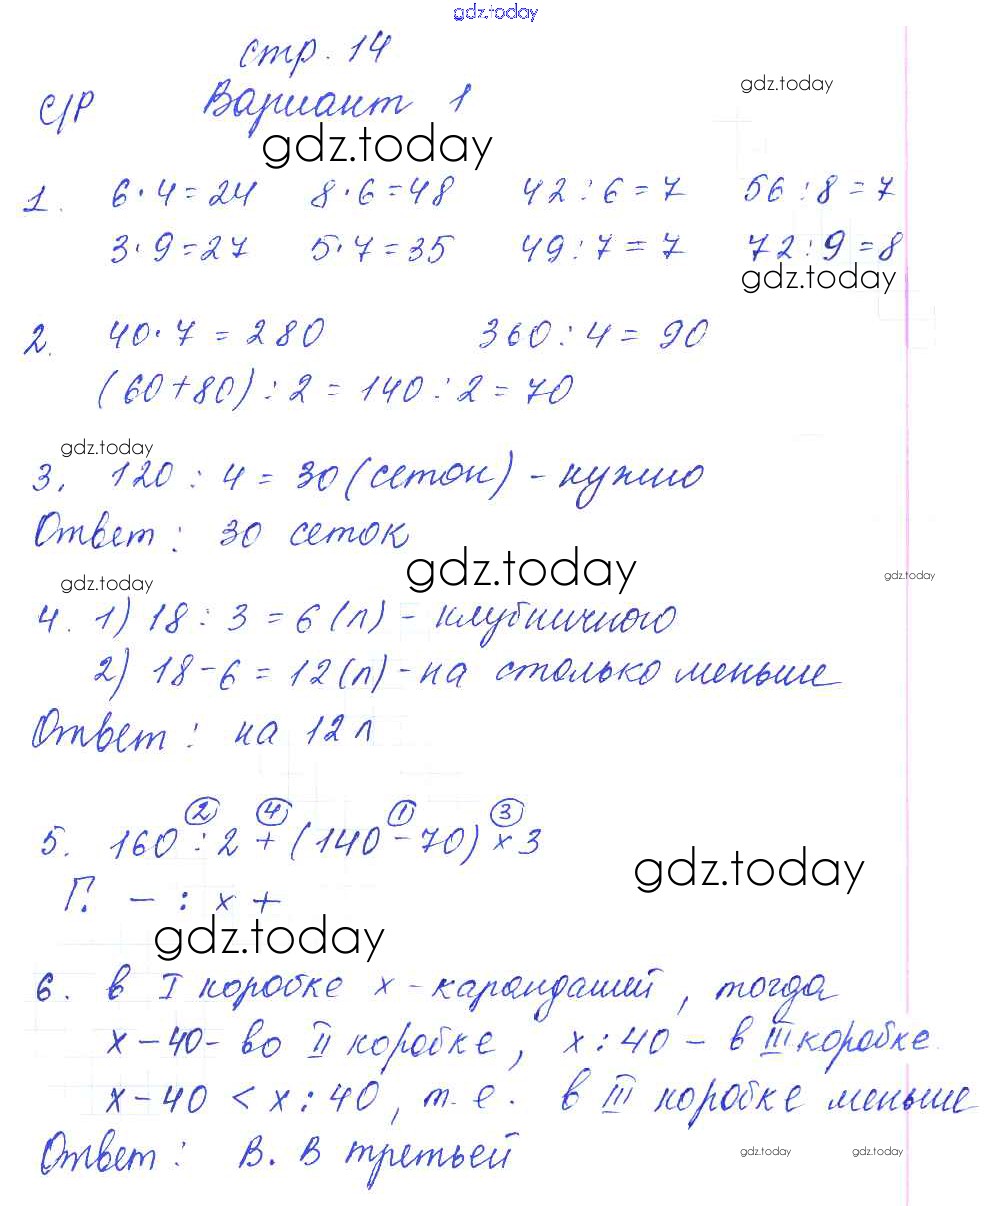 gdz.today
стр. 14
gdz.today
С/Р Вариант 1
gdz.today
1. 6·4=24 8·6=48 42:6=7 56:8=7
3·9=27 5·7=35 49:7=7 72:9=8
gdz.today
2. 40·7=280 360:4=90
(60+80):2=140:2=70
gdz.today
3. 120:4=30(сеток)-нужно
Ответ: 30 сеток
gdz.today
gdz.today
gdz.today
4. 1) 18:3=6(л)-клубничного
2) 18-6=12(л)-на столько меньше
Ответ: на 12 л
2 4 1 3
5. 160:2+(140-70)×3
gdz.today
Г. - : × +
gdz.today
6. в I коробке x-карандашей, тогда
x-40-во II коробке, x:40-в III коробке.
x-40<x:40, т.е. в III коробке меньше
Ответ: В. В третьей
gdz.today
gdz.today